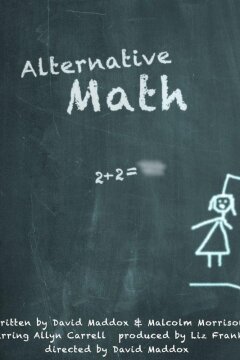 Alternative
Math
2+2=
written by David Maddox & Malcolm Morrison
starring Allyn Carrell produced by Liz Frank
directed by David Maddox